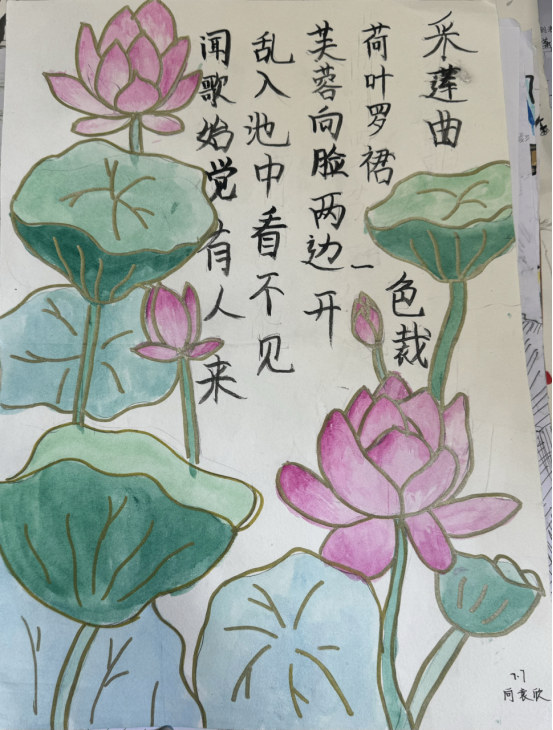 采莲曲
荷叶罗裙一色裁
芙蓉向脸两边开
乱入池中看不见
闻歌始觉有人来
7.7